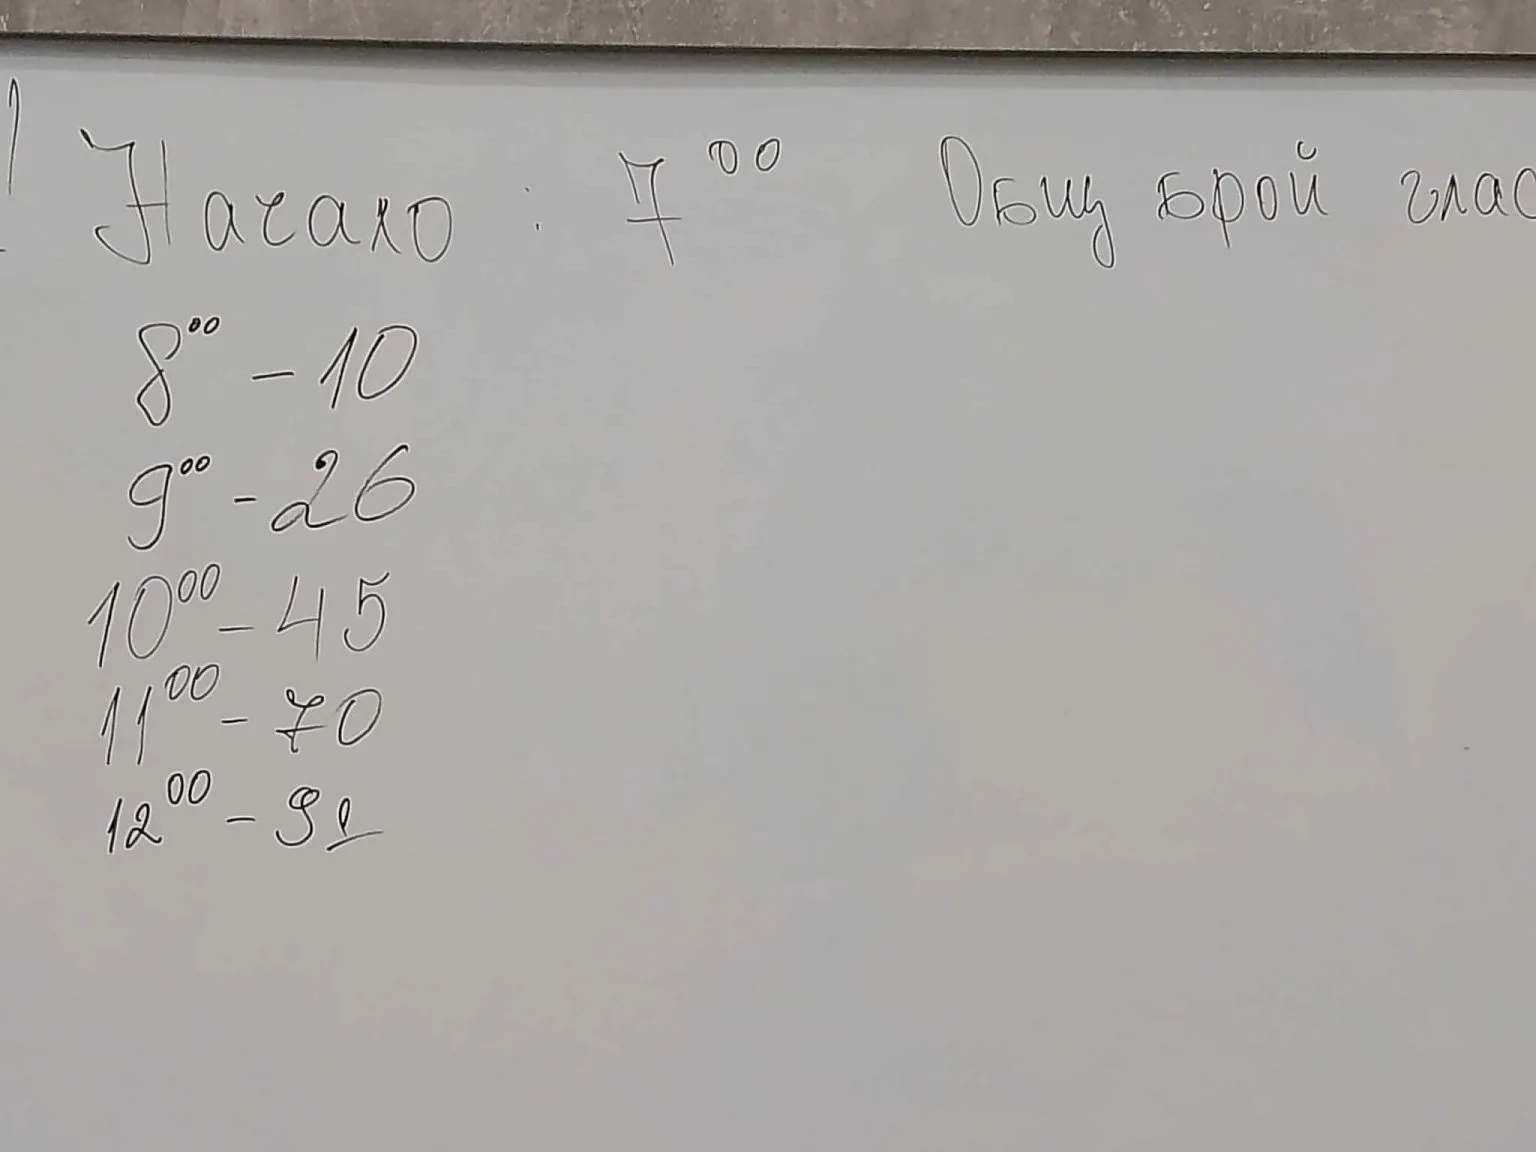 Начало : 7⁰⁰ Общ брой глас
8⁰⁰ - 10
9⁰⁰ - 26
10⁰⁰ - 45
11⁰⁰ - 70
12⁰⁰ - 91